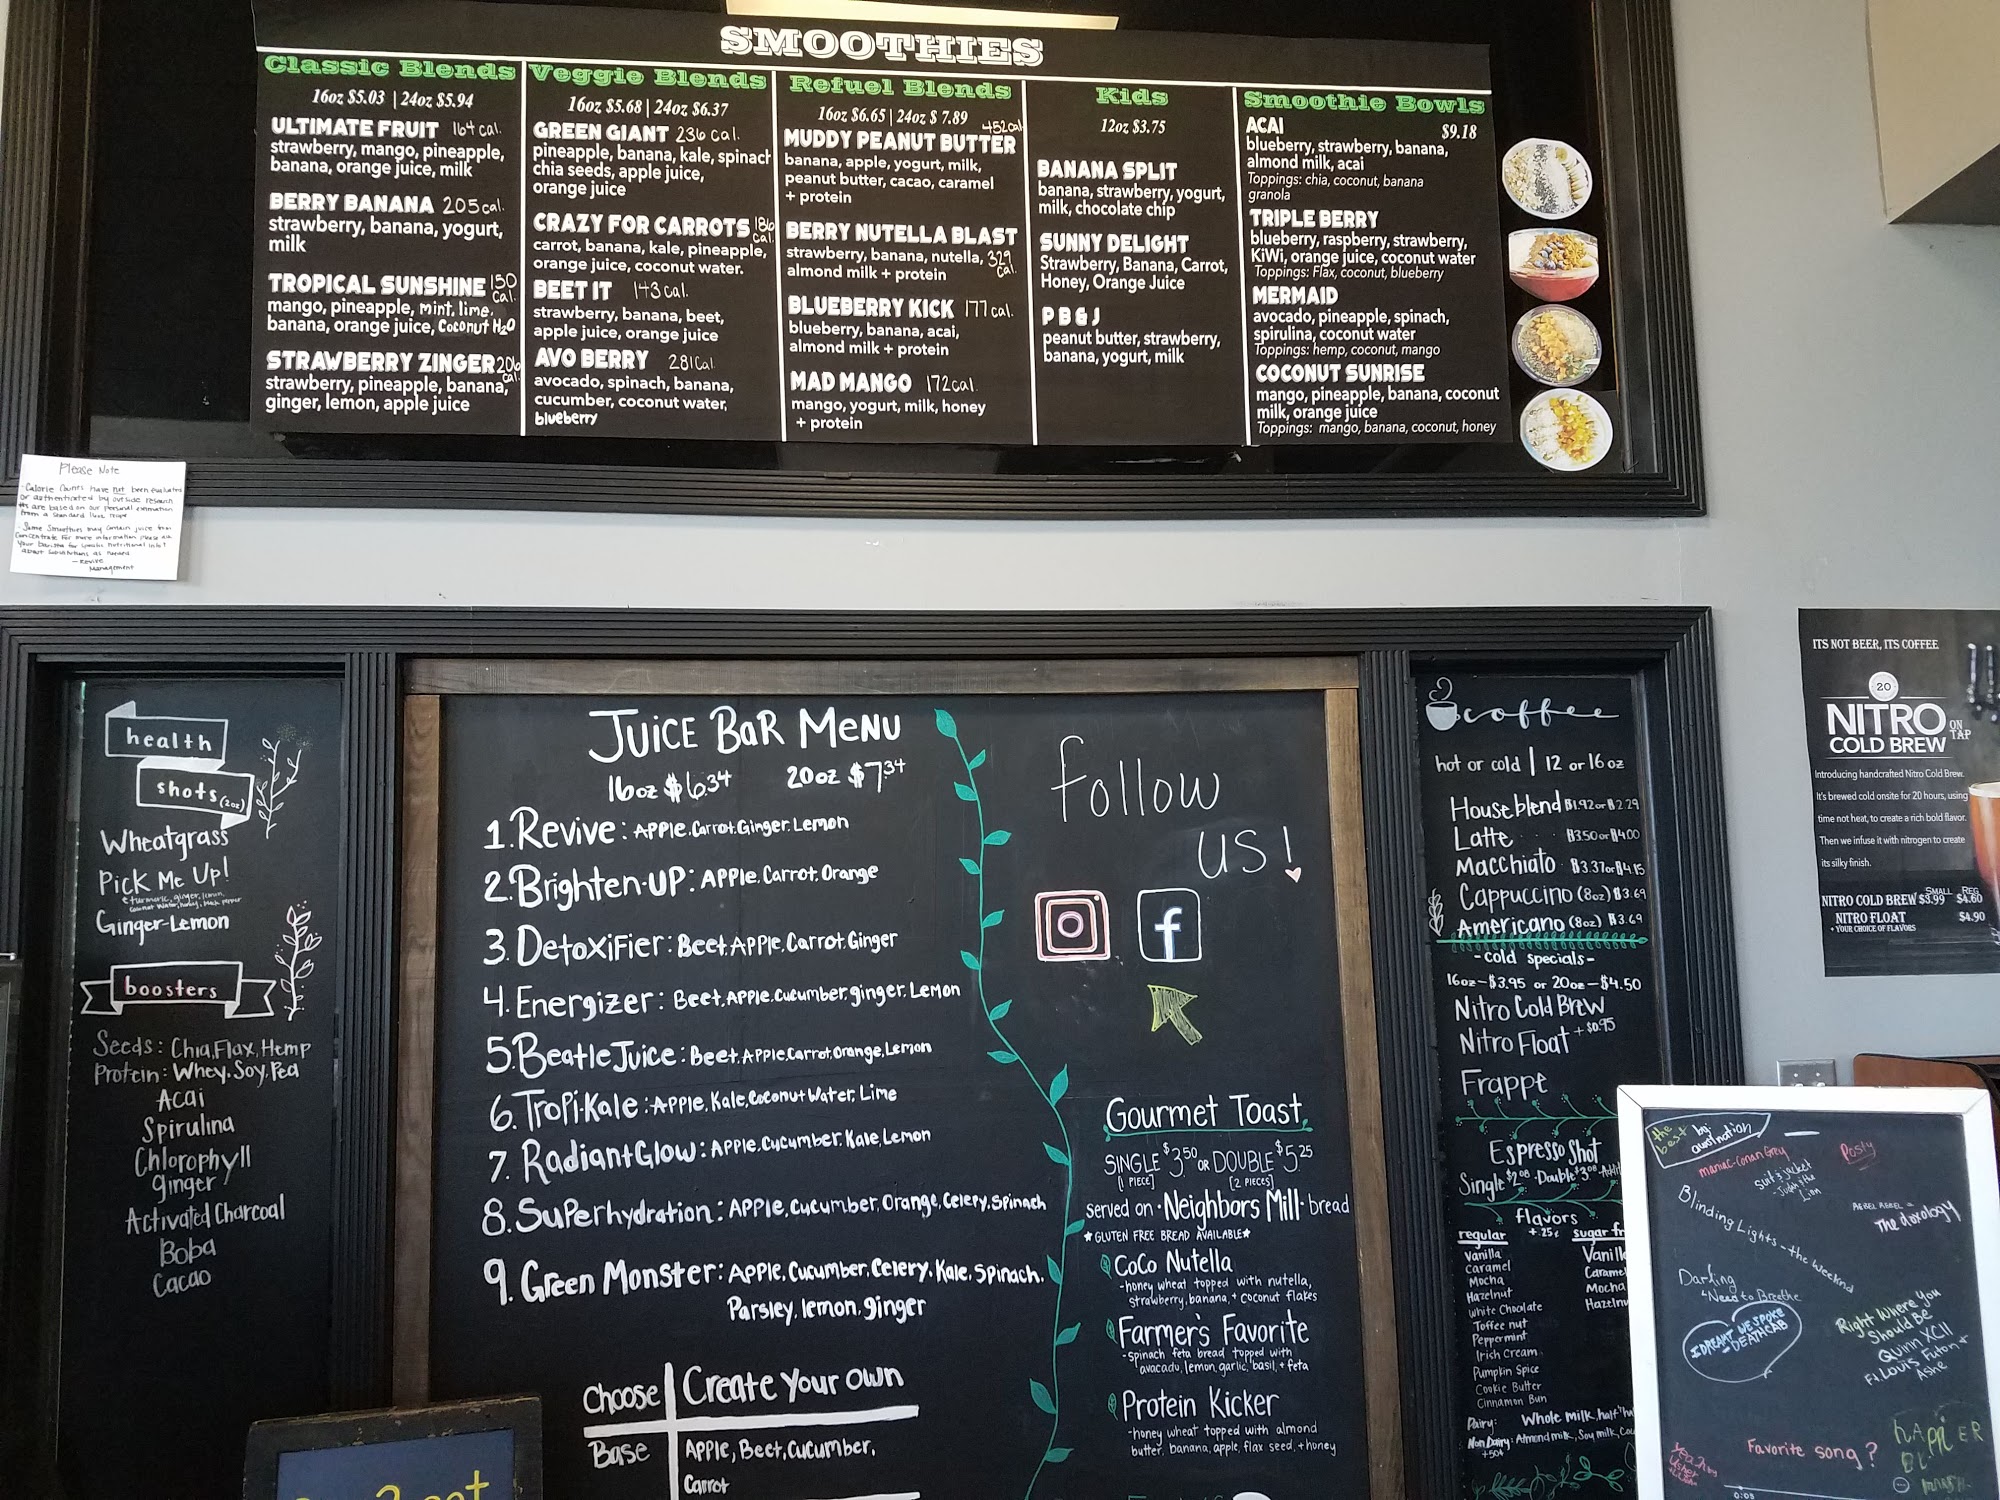 SMOOTHIES
Classic Blends
16oz $5.03 | 24oz $5.94
ULTIMATE FRUIT 164 cal.
strawberry, mango, pineapple,
banana, orange juice, milk
BERRY BANANA 205 cal.
strawberry, banana, yogurt,
milk
TROPICAL SUNSHINE 150 cal.
mango, pineapple, mint, lime,
banana, orange juice, Coconut H2O
STRAWBERRY ZINGER 206 cal.
strawberry, pineapple, banana,
ginger, lemon, apple juice
Veggie Blends
16oz $5.68 | 24oz $6.37
GREEN GIANT 236 cal.
pineapple, banana, kale, spinach
chia seeds, apple juice,
orange juice
CRAZY FOR CARROTS 186 cal.
carrot, banana, kale, pineapple,
orange juice, coconut water.
BEET IT 143 cal.
strawberry, banana, beet,
apple juice, orange juice
AVO BERRY 281 cal
avocado, spinach, banana,
cucumber, coconut water,
blueberry
Refuel Blends
16oz $6.65 | 24oz $ 7.89
MUDDY PEANUT BUTTER 452 cal
banana, apple, yogurt, milk,
peanut butter, cacao, caramel
+ protein
BERRY NUTELLA BLAST
strawberry, banana, nutella, 329 cal.
almond milk + protein
BLUEBERRY KICK 177 cal.
blueberry, banana, acai,
almond milk + protein
MAD MANGO 172 cal.
mango, yogurt, milk, honey
+ protein
Kids
12oz $3.75
BANANA SPLIT
banana, strawberry, yogurt,
milk, chocolate chip
SUNNY DELIGHT
Strawberry, Banana, Carrot,
Honey, Orange Juice
P B & J
peanut butter, strawberry,
banana, yogurt, milk
Smoothie Bowls
ACAI $9.18
blueberry, strawberry, banana,
almond milk, acai
Toppings: chia, coconut, banana
granola
TRIPLE BERRY
blueberry, raspberry, strawberry,
KiWi, orange juice, coconut water
Toppings: Flax, coconut, blueberry
MERMAID
avocado, pineapple, spinach,
spirulina, coconut water
Toppings: hemp, coconut, mango
COCONUT SUNRISE
mango, pineapple, banana, coconut
milk, orange juice
Toppings: mango, banana, coconut, honey
Please Note
- Calorie Counts have not been evaluated
or authenticated by outside research
are based on our personal estimation
from a standard 16oz recipe
- Some Smoothies may contain juice from
concentrate. For more information please ask
your barista for specific nutritional info!
about substitutions as needed
- Revive
Management
health
shots (2oz)
Wheatgrass
Pick Me Up!
turmeric, ginger, lemon,
coconut water, honey, black pepper
Ginger-Lemon
boosters
Seeds: Chia, Flax, Hemp
Protein: Whey, Soy, Pea
Acai
Spirulina
Chlorophyll
ginger
Activated Charcoal
Boba
Cacao
JUICE BAR MENU
16oz $6.34 20oz $7.34
1. Revive: Apple, Carrot, Ginger, Lemon
2. Brighten-UP: Apple, Carrot, Orange
3. Detoxifier: Beet, Apple, Carrot, Ginger
4. Energizer: Beet, Apple, Cucumber, ginger, Lemon
5. BeatleJuice: Beet, Apple, Carrot, Orange, Lemon
6. Tropi-Kale: Apple, Kale, Coconut Water, Lime
7. Radiant Glow: Apple, Cucumber, Kale, Lemon
8. Superhydration: Apple, Cucumber, Orange, Celery, Spinach
9. Green Monster: Apple, Cucumber, Celery, Kale, Spinach,
Parsley, lemon, ginger
Choose Create your own
Base Apple, Beet, Cucumber,
Carrot
follow
us!
f
Gourmet Toast
SINGLE $3.50 or DOUBLE $5.25
[1 PIECE] [2 PIECES]
served on · Neighbors Mill · bread
*GLUTEN FREE BREAD AVAILABLE*
CoCo Nutella
-honey wheat topped with nutella,
strawberry, banana, + coconut flakes
Farmer's Favorite
-spinach feta bread topped with
avacado, lemon, garlic, basil, + feta
Protein Kicker
-honey wheat topped with almond
butter, banana, apple, flax seed, + honey
coffee
hot or cold | 12 or 16 oz
House blend $1.92 or $2.29
Latte $3.50 or $4.00
Macchiato $3.37 or $4.15
Cappuccino (8oz) $3.69
Americano (8oz) $3.69
- cold specials -
16oz - $3.95 or 20oz - $4.50
Nitro Cold Brew
Nitro Float + $0.95
Frappe
Espresso Shot
Single $2.08 · Double $3.08
flavors
+.25¢
regular sugar fr
Vanilla Vanill
Caramel Carame
Mocha Mocha
Hazelnut Hazeln
White Choclate
Toffee nut
Peppermint
Irish Cream
Pumpkin Spice
Cookie Butter
Cinnamon Bun
Dairy: Whole milk, half
Non Dairy: Almond milk, Soy milk, Coc
+50¢
ITS NOT BEER, ITS COFFEE
20
NITRO ON TAP
COLD BREW
Introducing handcrafted Nitro Cold Brew.
It's brewed cold onsite for 20 hours, using
time not heat, to create a rich bold flavor.
Then we infuse it with nitrogen to create
its silky finish.
SMALL REG
NITRO COLD BREW $3.99 $4.60
NITRO FLOAT $4.90
+ YOUR CHOICE OF FLAVORS
the best
maniac-Conan Grey
Posty
suit & jacket
- Judah & the Lion
Blinding Lights - the weeknd
REBEL REBEL
The doxology
Darling
Need to Breathe
I DREAMT WE SPOKE
DEATHCAB
Right Where You
Should Be
Quinn XCII
Ft. Louis Futon +
Ashe
Favorite song?
HAPPIER